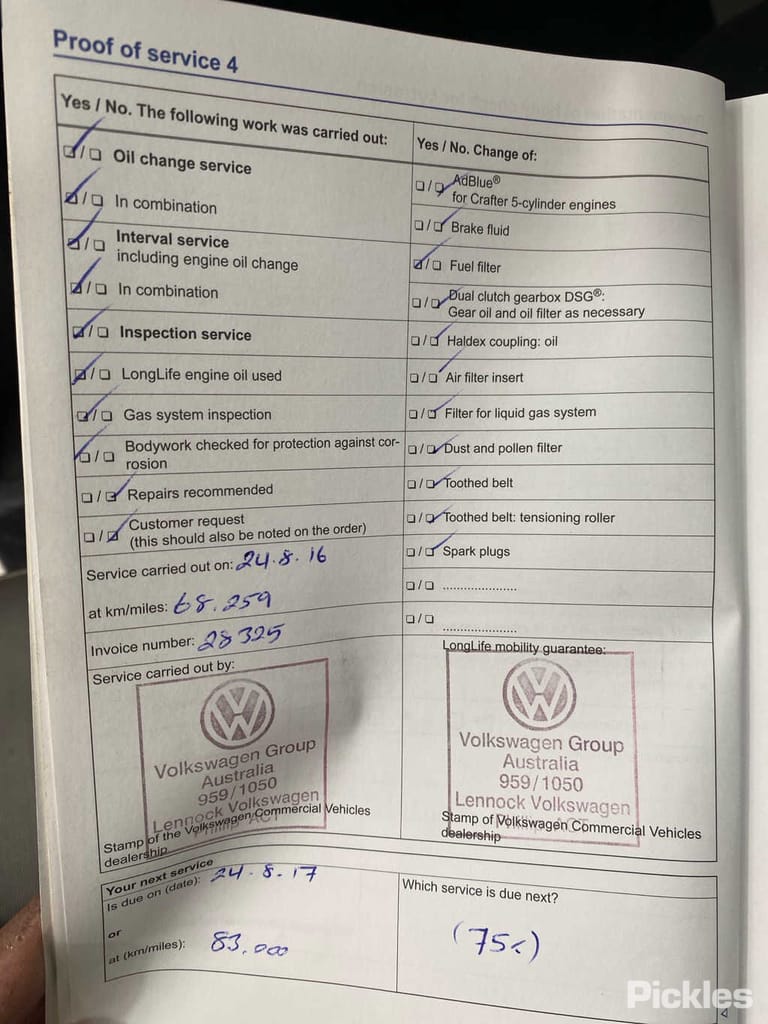 Proof of service 4
Yes / No. The following work was carried out:
☑/☐ Oil change service
☑/☐ In combination
☑/☐ Interval service
including engine oil change
☑/☐ In combination
☑/☐ Inspection service
☑/☐ LongLife engine oil used
☑/☐ Gas system inspection
☑/☐ Bodywork checked for protection against cor-
rosion
☐/☑ Repairs recommended
☐/☑ Customer request
(this should also be noted on the order)
Service carried out on: 24.8.16
at km/miles: 68.259
Invoice number: 28325
Service carried out by:
Volkswagen Group
Australia
959/1050
Lennock Volkswagen
Phillip ACT
Stamp of the Volkswagen Commercial Vehicles
dealership
Yes / No. Change of:
☐/☑ AdBlue®
for Crafter 5-cylinder engines
☐/☑ Brake fluid
☑/☐ Fuel filter
☐/☑ Dual clutch gearbox DSG®:
Gear oil and oil filter as necessary
☐/☑ Haldex coupling: oil
☐/☑ Air filter insert
☐/☑ Filter for liquid gas system
☐/☑ Dust and pollen filter
☐/☑ Toothed belt
☐/☑ Toothed belt: tensioning roller
☐/☑ Spark plugs
☐/☐ ....................
☐/☐ ....................
LongLife mobility guarantee:
Volkswagen Group
Australia
959/1050
Lennock Volkswagen
Phillip ACT
Stamp of Volkswagen Commercial Vehicles
dealership
Your next service
Is due on (date): 24.8.17
or
at (km/miles): 83.000
Which service is due next?
(75<)
Pickles